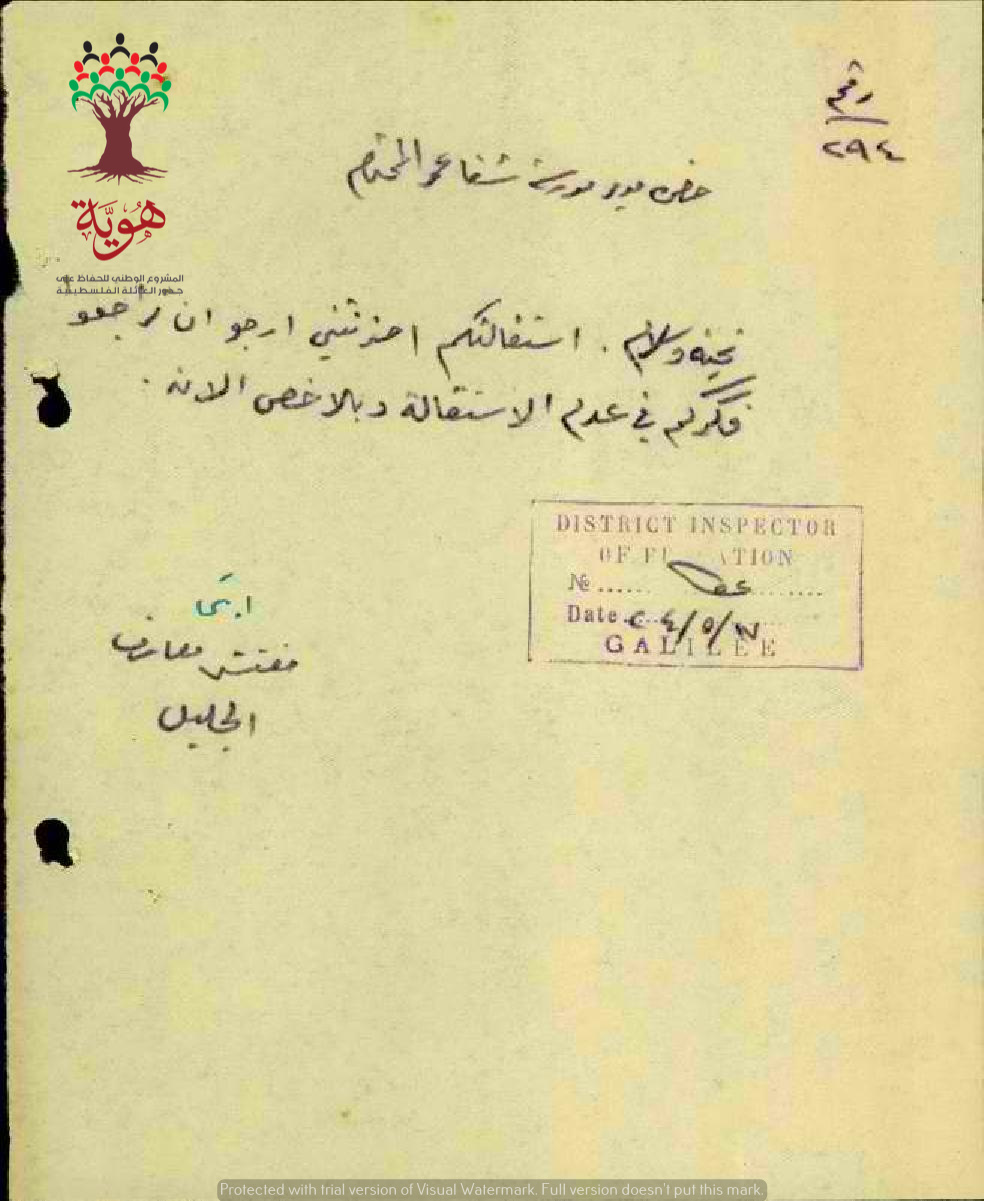 رقم
٢٩٤
حضرة مدير مدرسة شفا عمر المحترم
هُوِيَّة
المشروع الوطني للحفاظ على
جذور العائلة الفلسطينية
تحية وسلام . استقالتكم احزنتني ارجو ان
فكركم في عدم الاستقالة وبالاخص الان .
DISTRICT INSPECTOR
OF
No ......
Date ٢٤/٥/
GALILEE
مفتش معارف
الجليل
Protected with trial version of Visual Watermark. Full version doesn't put this mark.